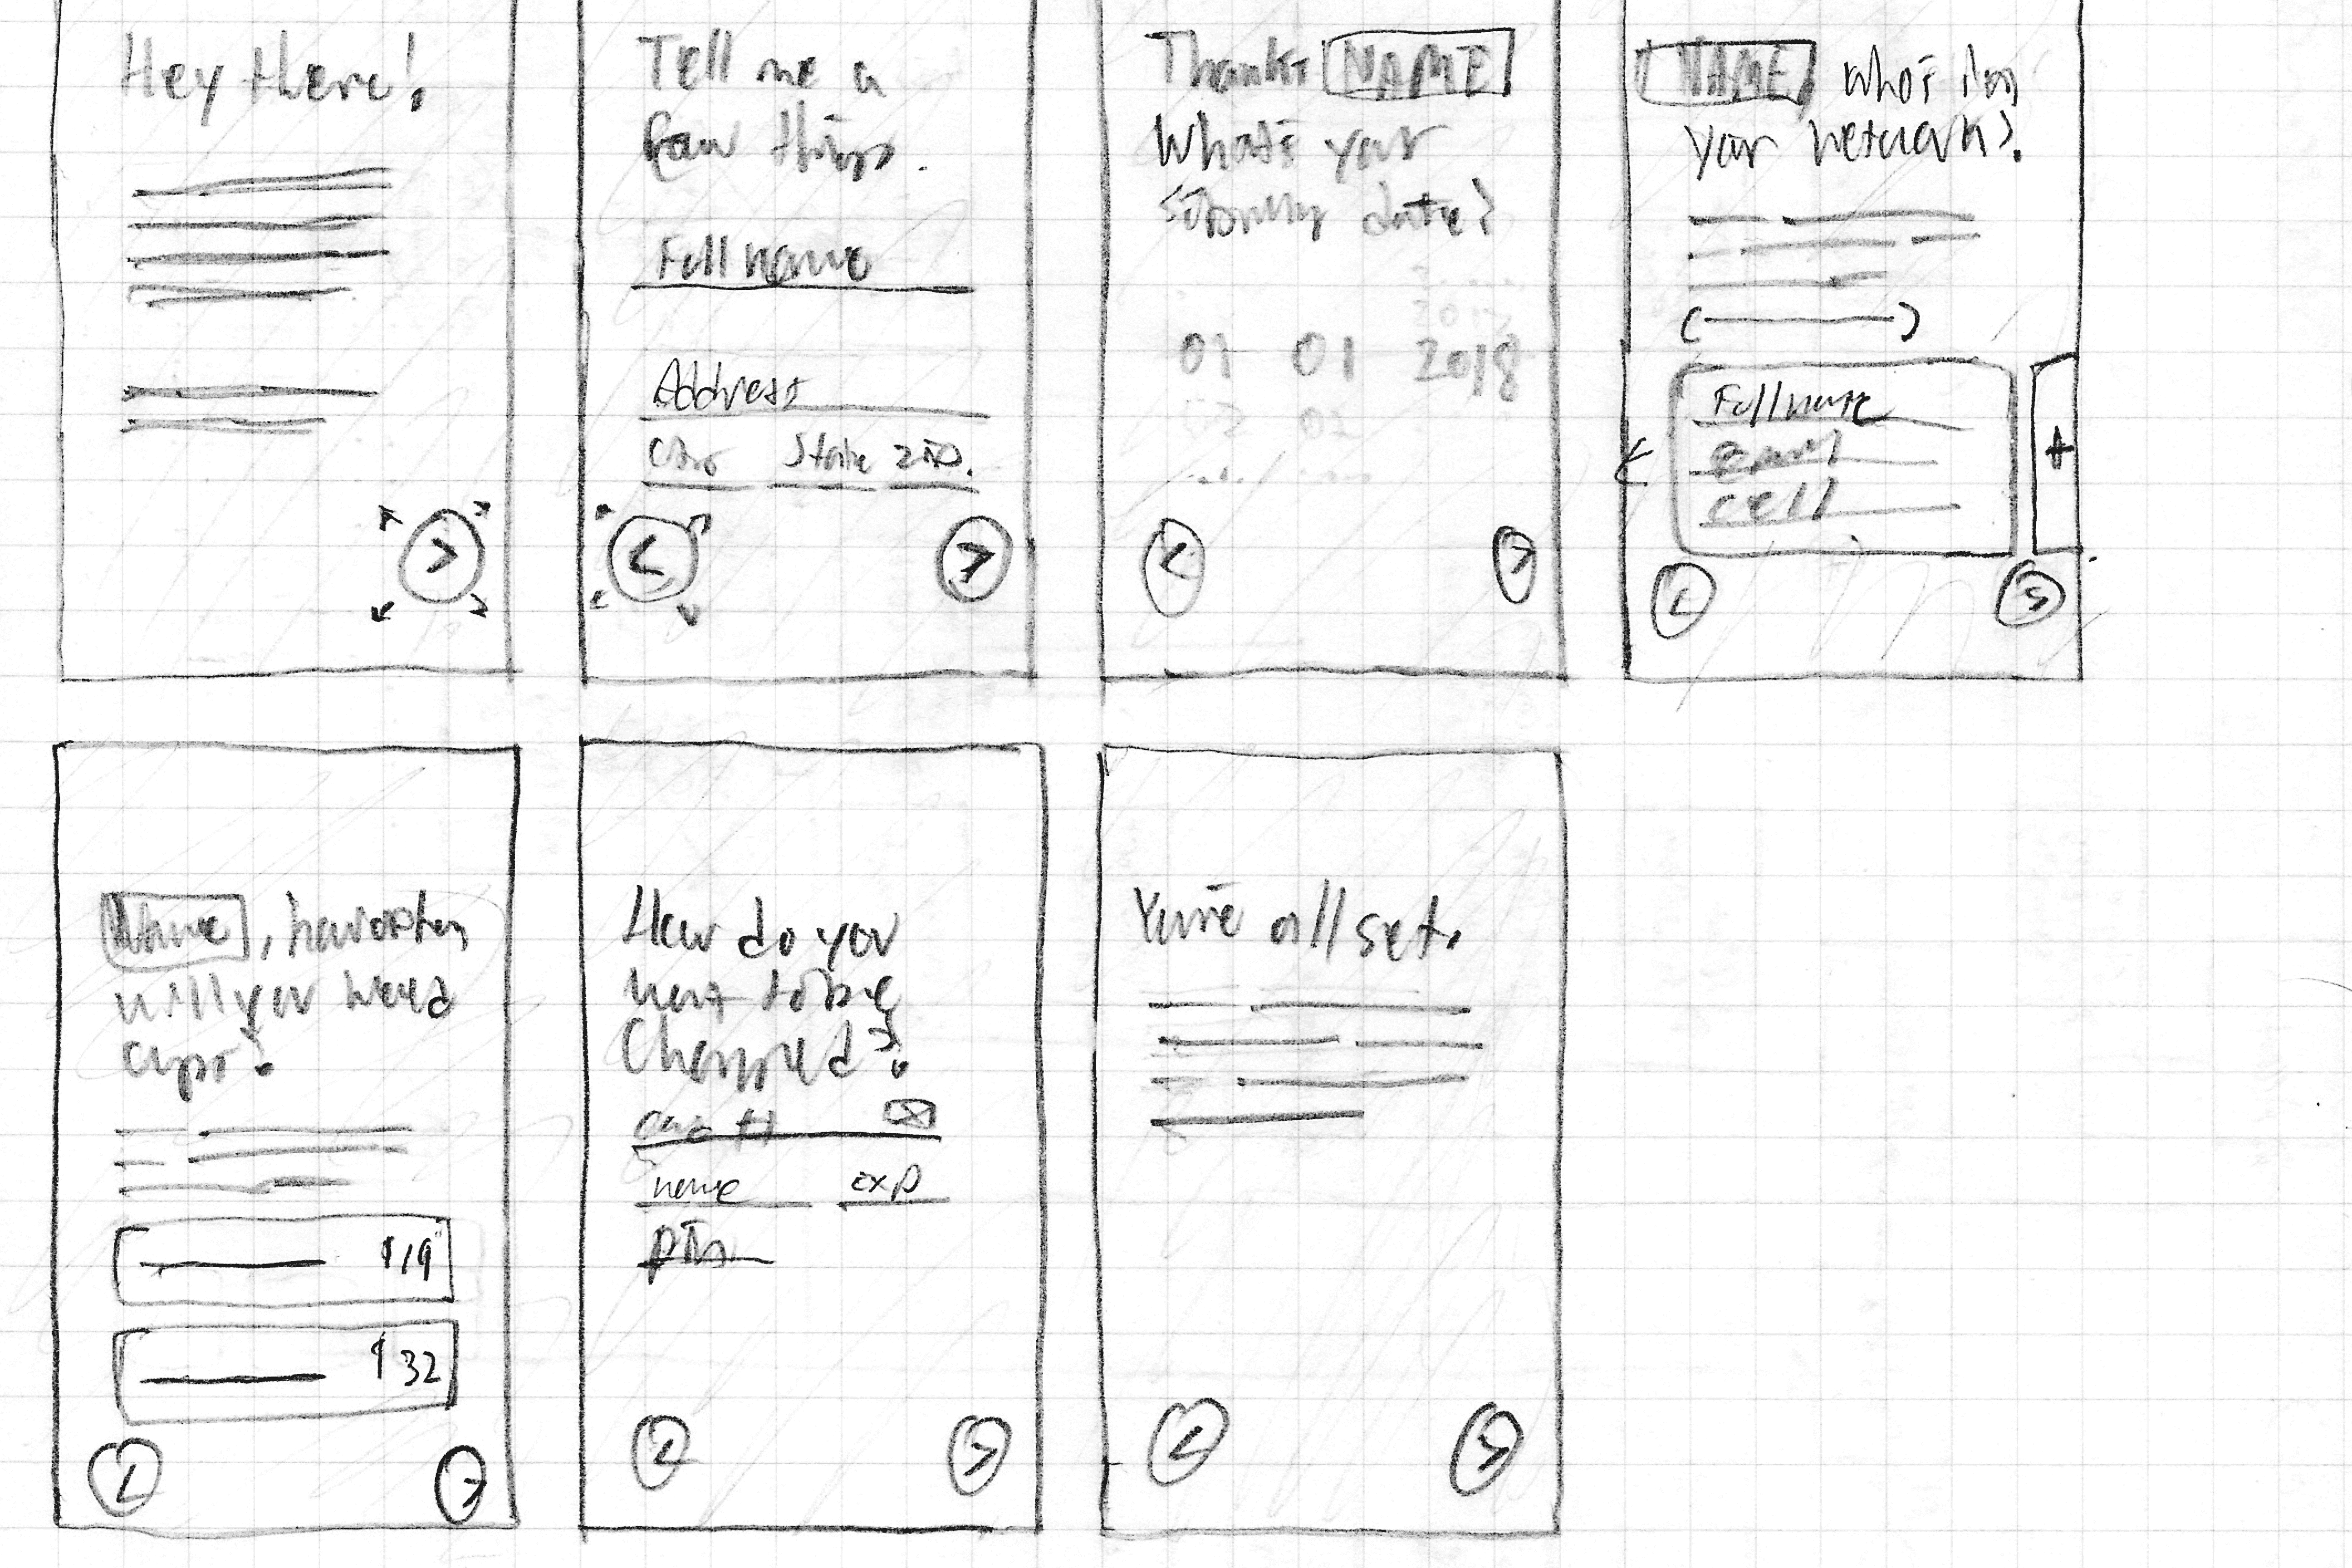 Hey there!
Tell me a
few things.
Full name
Address
State ZIP.
Thanks NAME
What's your
date?
01 01 2018
02 02
NAME, who's in
your network?
Full name
Email
cell
+
Name, how often
will you need
$19
$32
How do you
want to be
Charged?
card #
name exp
pin
You're all set.